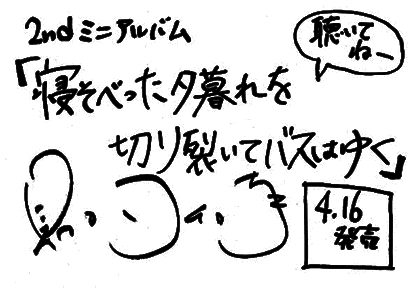 2ndミニアルバム
聴いて
ねー
「寝そべった夕暮れを
切り裂いてバスはゆく」
4.16
発売